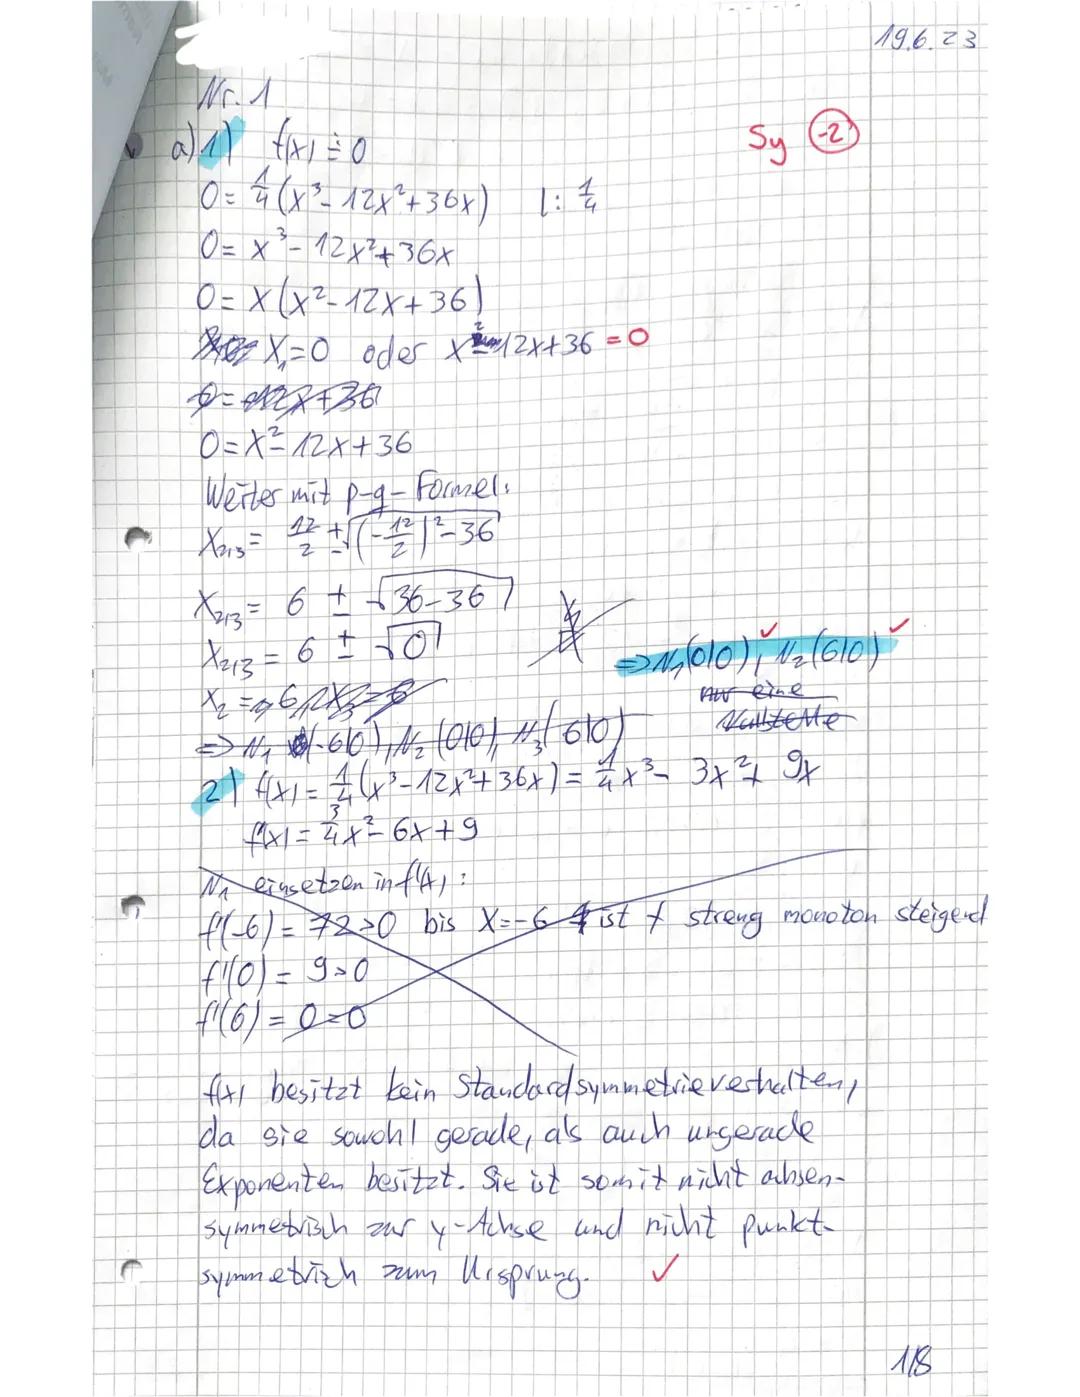 19.6.23
Nr. 1
a) 1) f(x) = 0
Sy -2
0 = 1/4 (x³ - 12x² + 36x) |: 1/4
0 = x³ - 12x² + 36x
0 = x (x² - 12x + 36)
X₁ = 0 oder x² - 12x + 36 = 0
0 = -12x + 36
0 = x² - 12x + 36
Weiter mit p-q-Formel:
X₂,₃ = 12/2 ± √((-12/2)² - 36)
X₂,₃ = 6 ± √(36-36)
X₂,₃ = 6 ± √0
⇒ N₁(0|0), N₂(6|0)
X₂ = 6
nur eine
Nullstelle
⇒ N₁ (-6|0), N₂ (0|0), N₃ (6|0)
2) f(x) = 1/4 (x³ - 12x² + 36x) = 1/4 x³ - 3x² + 9x
f'(x) = 3/4 x² - 6x + 9
N₁ einsetzen in f'(x):
f'(-6) = 72 > 0 bis x = -6 ist f streng monoton steigend
f'(0) = 9 > 0
f'(6) = 0 = 0
f(x) besitzt kein Standardsymmetrieverhalten,
da sie sowohl gerade, als auch ungerade
Exponenten besitzt. Sie ist somit nicht achsen-
symmetrisch zur y-Achse und nicht punkt-
symmetrisch zum Ursprung. ✓
1/8